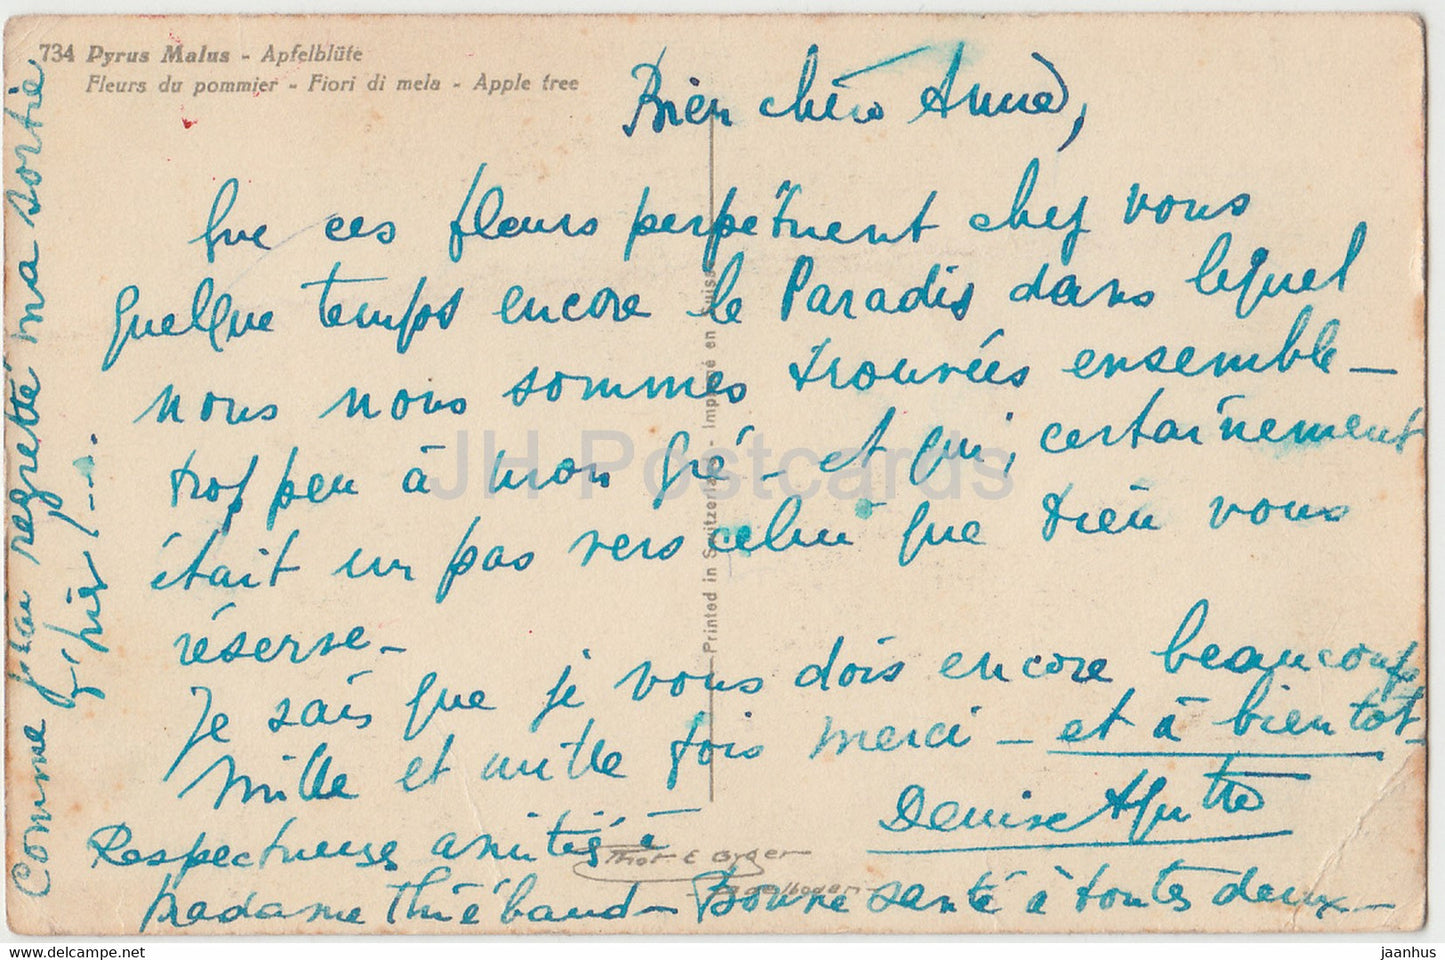 734 Pyrus Malus - Apfelblüte
Fleurs du pommier - Fiori di mela - Apple tree
Bien chère Anne,
Que ces fleurs perpétuent chez vous
quelque temps encore le Paradis dans lequel
nous nous sommes trouvées ensemble -
trop peu à mon gré - et qui, certainement
était un pas vers celui que Dieu vous
réserve -
Je sais que je vous dois encore beaucoup
Mille et mille fois merci - et à bientôt -
Denise
Respectueuses amitiés à
Madame Thiébaud - Bonne santé à toutes deux -
Comme j'ai regretté ma sortie
Printed in Switzerland - Imprimé en Suisse
Phot E Gyger
Adelboden
JH Postcards
www.hippostcard.com
jaanhus